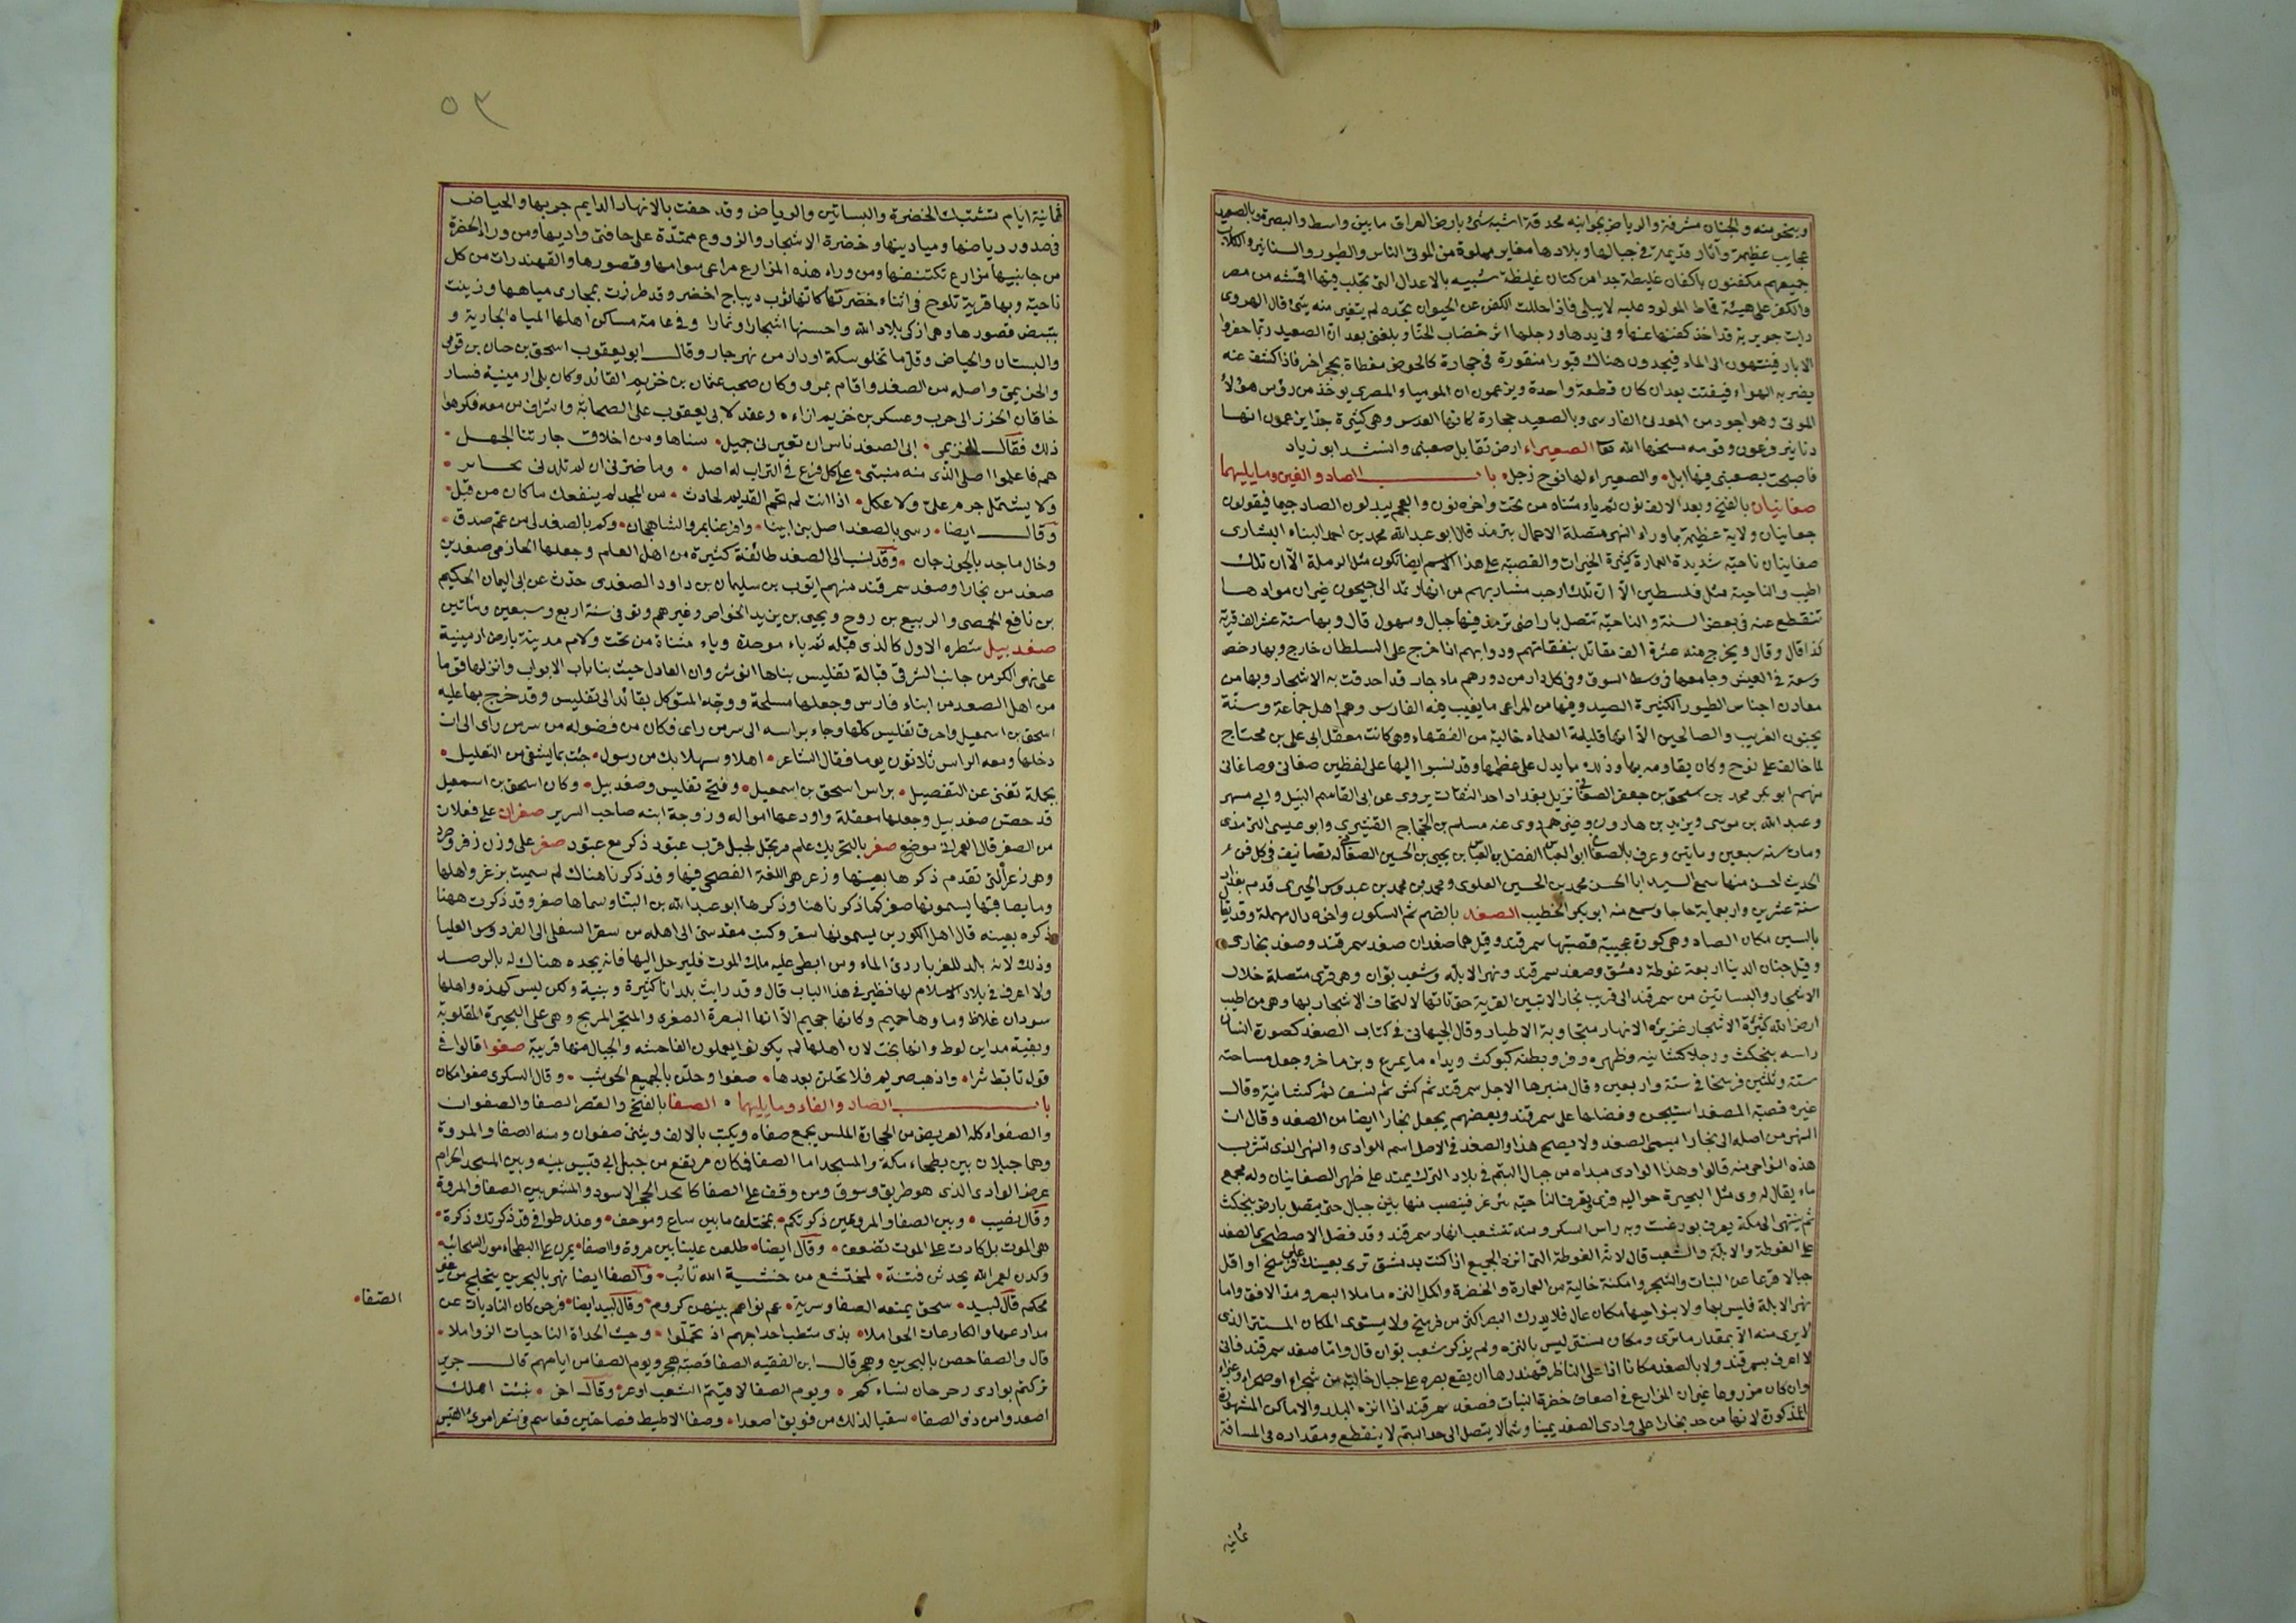 وبتخومنه والجنان مشرفة والرياض بجوانبه محدقة اشبه شئ بارض العراق ما بين واسط والبصرة وبالصعيد
عجايب عظيمة وآثار قديمة في جبالها وبلادها مغاير مملوة من الموتى الناس والطيور والسنانير والكلاب
جميعهم مكفنون باكفان غليظة جدا من كتان غليظة شبيه بالاعدال التي تجلب فيها الاقمشه من مصر
والكفن على هيئة قماط المولود عليه لا يبلى فاذا حللت الكفن عن الحيوان تجده لم يتغير منه شئ قال الهروى
رايت جويرية قد اخذ كفنها عنها وفى يدها ورجلها اثر خضاب الحنا وبلغنى بعد ان الصعيد ربما حفروا
الابار فينتهون الى الماء فيجدون هناك قبورا منقورة فى حجارة كالحوض مغطاة بحجر اخر فاذا كشف عنه
يضربه الهواء فيتفتت بعد ان كان قطعة واحدة ويزعمون ان المومياء المصرى يوخذ من رؤس هؤلاء
الموتى وهو اجود من المعدنى الفارسى وبالصعيد حجارة كانها العدس وهى كثيرة جدا يزعمون انها
دنانير فرعون وقومه مسخها الله تعا الصعيراء ارض تقابل صعبنى وانشد ابو زياد
فاصبحت بصعبنى فيها ابل والصعيراء لها نوح زجل باب الصاد والغين وما يليهما
صغانيان بالفتح وبعد الالف نون ثم ياء مثناه من تحت واخره نون والعجم يبدلون الصاد جيما فيقولون
جغانيان ولاية عظيمة بماوراء النهر متصلة الاعمال بترمذ قال ابو عبد الله محمد بن احمد البناء البشارى
صغانيان ناحية شديدة العمارة كثيرة الخيرات والقصبة على هذا الاسم ايضا تكون مثل الرملة الا ان تلك
اطيب والناحية مثل فلسطين الا ان تلك ارحب مشاربهم من انهار تمد الى جيحون غير ان موادها
تنقطع عنه فى بعض السنة والناحية تتصل باراضى ترمذ فيها جبال وسهول قال وبها ستة عشر الف قرية
كذا قال وقال ويخرج منه عشرة الف مقاتل بنفقاتهم ودوابهم اذا خرج على السلطان خارج وبها رخص
وسعة فى العيش وجامعها فى وسط السوق وفى كل دار من دورهم ماء جار قد احدقت به الاشجار وبها من
معادن اجناس الطيور الكثيرة الصيد وفيها من المراعى ما يغيب فيه الفارس وهم اهل جماعة وسنة
يحبون الغريب والصالحين الا انها قليلة العلماء خالية من الفقهاء وهى كانت معقل ابى على بن محتاج
لما خالف على نوح وكان يقاومه بها وذلك مما يدل على عظمها وقد نسبوا اليها على لفظين صغانى وصاغانى
منهم ابو بكر محمد بن اسحق بن جعفر الصغانى نزيل بغداد احد الثقات يروى عن ابى القاسم النبيل وابى مسهر
وعبد الله بن موسى ويزيد بن هارون وغيرهم روى عنه مسلم بن الحجاج القشيرى وابو عيسى الترمذى
ومات سنه سبعين ومايتين وعرف بالصغانى ابو العباس الفضل بن العباس بن يحيى بن الحسين الصغانى له تصانيف فى كل فن
الحديث احسن منها سمع السيد ابا الحسن محمد بن الحسين العلوى ومحمد بن محمد بن عبدوس الحيرى قدم بغداد
سنة عشرين واربعماية حاجا وسمع منه ابو بكر الخطيب الصغد بالضم ثم السكون واخره دال مهملة وقد يقا
بالسين مكان الصاد وهى كورة عجيبة قصبتها سمرقند وقيل هما صغدان صغد سمرقند وصغد بخارى
وقيل جنان الدنيا اربعة غوطة دمشق وصغد سمرقند ونهر الابله وشعب بوان وهى قرى متصلة خلال
الاشجار والبساتين من سمرقند الى قريب بخارا لا تبين القرية حتى تاتيها لالتحاف الاشجار بها وهى من اطيب
ارض الله كثيرة الاشجار غزيره الانهار متجاوبة الاطيار وقال الجيهانى فى كتاب الصغد كصورة انسان
راسه بنجكث ورجلاه كشانيه وظهره وفر وبطنه كبوكث ويداه مايمرغ وبزماخر وجعل مساحته
ستة وثلثين فرسخا فى ستة واربعين وقال منبرها الاجل سمرقند ثم كش ثم نسف ثم كشانية وقال
غيره قصبة الصغد استيجن وفضلها على سمرقند وبعضهم يجعل بخارا ايضا من الصغد وقال ان
النهر من اصله الى بخارا يسمى الصغد ولا يصح هذا والصغد فى الاصل اسم للوادى والنهر الذى تشرب
هذه النواحى منه قالوا وهذا الوادى مبداه من جبال البتم فى بلاد الترك يمتد على ظهر الصغانيان وله مجمع
ماء يقال له وى مثل البحيرة حواليه قرى يعرف الناحيه ببرغر فينصب منها بين جبال حتى يتصل بارض بنجكث
ثم ينتهى الى مكة يعرف بورغست وبه راس السكر ومنه تتشعب انهار سمرقند وقد فضل الاصطخرى الصغد
على الغوطة والابلة والشعب قال لان الغوطة التى انزه الجميع اذا كنت بدمشق ترى بعينك على فرسخ او اقل
جبالا قرعا من النبات والشجر وامكنة خالية من العمارة والخضرة واكمل النزه ما ملا البصر ومد الافق واما
نهر الابلة فليس بها ولا بنواحيها مكان عال فلا يدرك البصر اكثر من فرسخ ولا يستوى المكان المستتر الذى
لا يرى منه الا بمقدار ما ترى ومكان مستتر ليس بالنزه ولم يذكر شعب بوان قال واما صغد سمرقند فانى
لا اعرف بسمرقند ولا بالصغد مكانا اذا علا الناظر قهندزها ان يقع بصره على جبال خالية من شجر او صحراء وغبراء
وان كان مزروعا غير ان المزارع فى اضعاف خضرة النبات فصغد سمرقند اذا انزه البلد والاماكن المشهورة
المذكورة لانها من حد بخارا على وادى الصغد يمينا وشمالا يتصل الى حد البتم لا ينقطع ومقداره فى المسافة
ثمانية
٥٣
ثمانية ايام تشتبك الخضرة والبساتين والرياض وقد حفت بالانهار الدايم جريها والحياض
فى صدور رياضها وميادينها وخضرة الاشجار والزروع ممتدة على حافتى واديها ومن وراء الخضرة
من جانبيها مزارع تكتنفها ومن وراء هذه المزارع مراعى سوامها وقصورها والقهندرات من كل
ناحية وبها قرية تلوح فى اثناء خضرتها كانها ثوب ديباج اخضر وقد طرزت بمجارى مياهها وزينت
بتبيض قصورها وهى ازكى بلاد الله واحسنها اشجارا وثمارا وفى عامة مساكن اهلها المياه الجارية و
والبستان والحياض وقل ما تخلو سكة او دار من نهر جار وقال ابو يعقوب اسحق بن حسان بن قوهى
والخزيمى واصله من الصغد واقام بمرو وكان صحب عثمان بن خزيم القائد وكان يلى ارمينية فسار
خاقان الخزر الى حرب وعسكر بن خزيم ازاءه وعقد لابى يعقوب على الصحابة واشراف من معه فكرهوا
ذلك فقال الخزيمى ابى الصغد ناس ان تعيرنى جميل سناها ومن اخلاق جارتنا الجهل
هم فاعلموا اصلى الذى منه منبتى على كل فرع فى التراب له اصل وما ضرنى ان لم تلدنى يحابر
ولا يشتمل جرم على ولا عكل اذا انت لم تحم القديم لحادث من المجد لم ينفعك ما كان من قبل
وقال ايضا رسى بالصغد اصل بنى ابينا وافرعنا بمرو الشاهجان وكم بالصغد لى من عم صدق
وخال ماجد بالجوزجان وقد نسب الى الصغد طائفة كثيرة من اهل العلم وجعلها الحازمى صغدين
صغد من بخارا وصغد سمرقند منهم ايوب بن سليمان بن داود الصغدى حدث عن ابى اليمان الحكيم
بن نافع الحمصى والربيع بن روح ويحيى بن يزيد الخواص وغيرهم وتوفى سنة اربع وسبعين ومئاتين
صغدبيل شطره الاول كالذى قبله ثم باء موحدة وياء مثناة من تحت ولام مدينة بارض ارمينية
على نهر الكر من جانب الشرقى قبالة تفليس بناها انوشروان العادل حيث بنا باب الابواب وانزلها قوما
من اهل الصغد من ابناء فارس وجعلها مسلحة ووجه المتوكل بقائد الى تفليس وقد خرج بها عليه
اسحق بن اسمعيل واحرق تفليس كلها وجاء براسه الى سر من راى فكان من فضوله من سر من راى الى ان
دخلها ومعه الراس ثلاثون يوما فقال الشاعر اهلا وسهلا بك من رسول جئت بما يشفى من الغليل
بجملة تغنى عن التفصيل براس اسحق بن اسمعيل وفتح تفليس وصغدبيل وكان اسحق بن اسمعيل
قد حصن صغدبيل وجعلها معقلة واودعها امواله وزوجة ابنه صاحب السرير صغران على فعلان
من الصغر قال العمرانى موضع صغر بالتحريك علم مرتجل لجبل قرب عبود ذكر مع عبود صغر على وزن زفر وصرد
وهى زغر التى تقدم ذكرها بعينها وزغر هى اللغة الفصحى فيها وقد ذكرنا هناك لم سميت بزغر واهلها
وما يصاقبها يسمونها صغر كما ذكرنا هنا وذكرها ابو عبد الله بن البنا وسماها صغر وقد ذكرت ههنا
ذكره بعينه قال اهل الكورين يسمونها سقر وكتب مقدسى الى اهله من سقر السفلى الى الفردوس العليا
وذلك لانه بلد للغربا ردئ الماء ومن ابطى عليه ملك الموت فليرحل اليها فانه يجده هناك له بالرصد
ولا اعرف فى بلاد الاسلام لها نظير فى هذا الباب قال وقد رايت بلدانا كثيرة وبنية ولكن ليس كهذه واهلها
سودان غلاظ وماوها حميم وكانها جحيم الا انها البصرة الصغرى والمتجر المربح وهى على البحيرة المقلوبة
وبقية مداين لوط وانما نجت لان اهلها لم يكونوا يعملون الفاحشه والجبال منها قريبة صغوا قالوا فى
قول تابط شرا واذهب صريم فلا تحلن بعدها صغوا وحلن بالجميع الحوشب وقال السكرى صغوا مكان
باب الصاد والفاء وما يليهما الصفا بالفتح والقصر الصفا والصفوان
والصفواء كله العريض من الحجارة الملس يجمع صفاه ويكتب بالالف ويثنى صفوان ومنه الصفا والمروة
وهما جبلان بين بطحاء مكة والمسجد اما الصفا فمكان مرتفع من جبل ابى قبيس بينه وبين المسجد الحرام
عرض الوادى الذى هو طريق وسوق ومن وقف على الصفا كان بحد الحجر الاسود والمشعر بين الصفا والمروة
وقال نصيب وبين الصفا والمروتين ذكرتكم بمختلف ما بين ساع وموجف وعند طوافى قد ذكرتك ذكرة
هى الموت بل كادت على الموت تضعف وقال ايضا طلعن علينا بين مروة والصفا يمرن على البطحاء مور السحائب
وكدن لعمر الله يحدثن فتنة لمختشع من خشية الله تائب والصفا ايضا نهر بالبحرين يتخلج من عين
محكم قال لبيد سحق يمتعه الصفا وسريه عم نواعم بينهن كروم وقال لبيد ايضا فرحن كان الناديات عن
الصفا
مدارعها والكارعات الحواملا بذى شطب احداجهم اذ تحملوا وحث الحداة الناجيات الزواملا
قال والصفا حصن بالبحرين وهجر قال ابن الفقيه الصفا قصبة هجر ويوم الصفا من ايامهم قال جرير
تركتم بوادى رحرحان نساءكم ويوم الصفا لاقيتم الشعب اوعرا وقال اخر نبئت اهلك
اصعدوا من ذو الصفا سقيا لذلك من فويق اصعدا وصفا الاطيط فصاحتين فعاسم فى شعر امرئ القيس